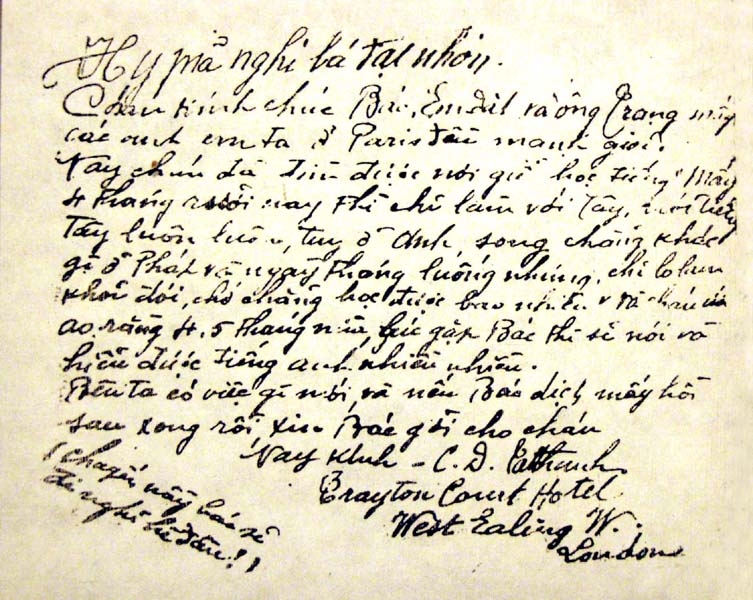 Hy mã nghi bá đại nhơn.
Cháu kính chúc Bác, Em dật và ông Trang mấy
các anh em ta ở Paris đều mạnh giỏi.
Nay cháu đã tìm được nơi để học tiếng. Mấy
4 tháng rưỡi nay thì chỉ làm với Tây, nói tiếng
Tây luôn luôn, tuy ở Anh, song chẳng khác
gì ở Pháp và ngày tháng luống những, chỉ lo làm
khỏi đói, chớ chẳng học được bao nhiêu. Và cháu ước
ao rằng 4, 5 tháng nữa, lúc gặp Bác thì sẽ nói và
hiểu được tiếng anh nhiều nhiều.
Bên ta có việc gì mới, và nếu Bác dịch mấy hồi
sau xong rồi xin Bác gởi cho cháu
Nay kính - C. D. Tatthanh
Drayton Court Hotel
West Ealing W.
London
(chagến nầy bác sẽ
đi nghỉ hè đâu?)